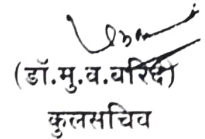 (डॉ.मु.व.वरिदे)
कुलसचिव